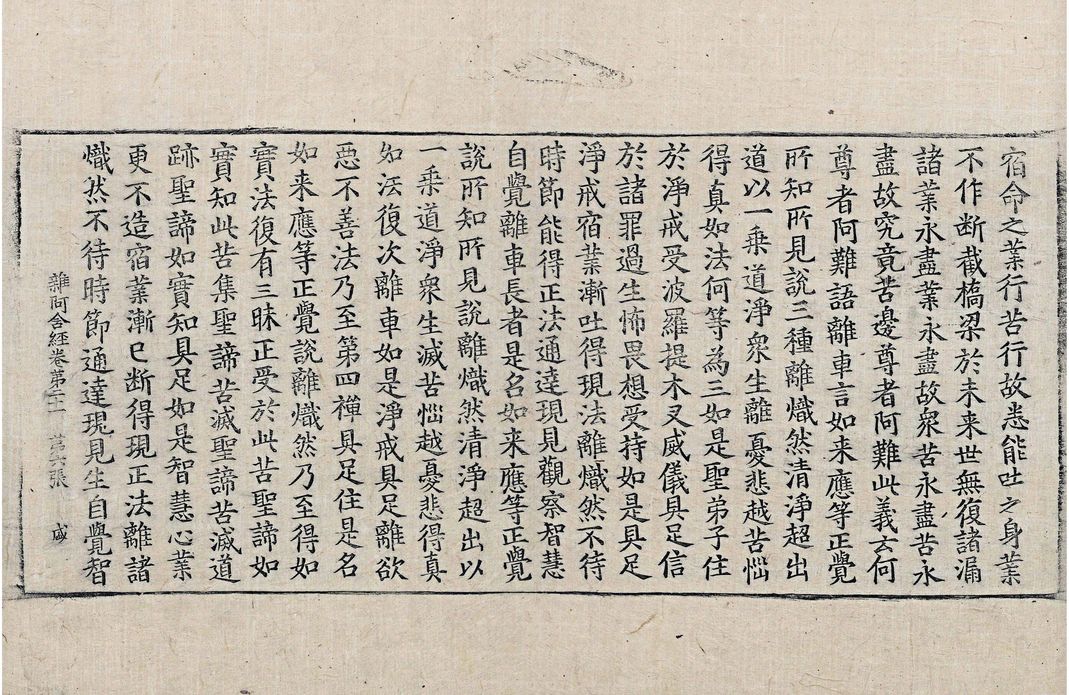 宿命之業行苦行故悉能吐之身業
不作断截橋梁於未来世無復諸漏
諸業永盡業永盡故衆苦永盡苦永
盡故究竟苦邊尊者阿難此義云何
尊者阿難語離車言如来應等正覺
所知所見說三種離熾然清淨超出
道以一乗道淨衆生離憂悲越苦惱
得真如法何等為三如是聖弟子住
於淨戒受波羅提木叉威儀具足信
於諸罪過生怖畏想受持如是具足
淨戒宿業漸吐得現法離熾然不待
時節能得正法通達現見觀察智慧
自覺離車長者是名如来應等正覺
說所知所見說離熾然清淨超出以
一乗道淨衆生滅苦惱越憂悲得真
如法復次離車如是淨戒具足離欲
惡不善法乃至第四禪具足住是名
如来應等正覺說離熾然乃至得如
實法復有三昧正受於此苦聖諦如
實知此苦集聖諦苦滅聖諦苦滅道
跡聖諦如實知具足如是智慧心業
更不造宿業漸已断得現正法離諸
熾然不待時節通達現見生自覺智
雜阿含經卷第二十一 第六張 盛